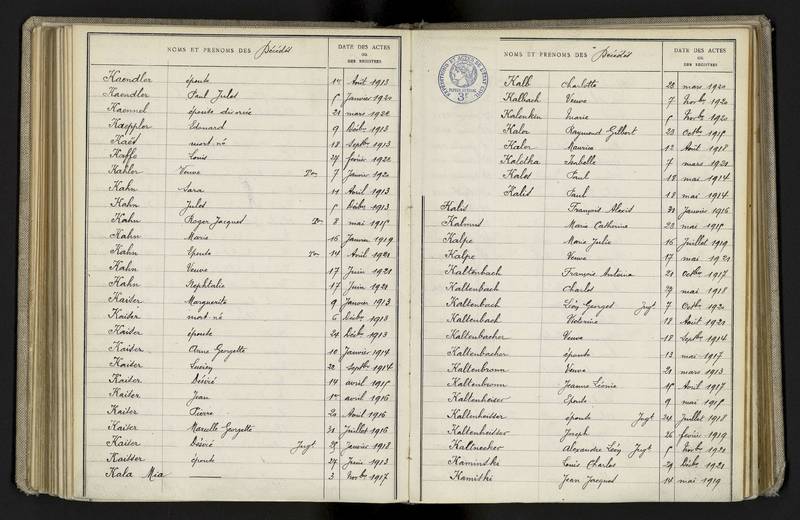 NOMS ET PRENOMS DES Décédés
DATE DES ACTES
OU
DES REGISTRES
Kaendler épouse 1er Août 1913
Kaendler Paul Jules 5 Janvier 1920
Kaennel épouse divorcée 21 mars 1920
Kaeppler Edouard 9 Décbre 1913
Kaës mort né 18 Septbre 1913
Kaffe Louis 24 février 1920
Kahler Veuve 7 Janvier 1920
Kahn Sara 11 Avril 1913
Kahn Jules 5 Décbre 1913
Kahn Roger Jacques 8 mai 1915
Kahn Marie 16 Janvier 1919
Kahn Epouse 14 Avril 1921
Kahn Veuve 17 Juin 1921
Kahn Nephtalie 17 Juin 1921
Kaiser Marguerite 9 Janvier 1913
Kaiser mort né 6 Décbre 1913
Kaiser épouse 20 Décbre 1913
Kaiser Anne Georgette 10 Janvier 1914
Kaiser Lucien 22 Septbre 1914
Kaiser Désiré 14 avril 1915
Kaiser Jean 1er avril 1916
Kaiser Pierre 20 Avril 1916
Kaiser Marcelle Georgette 31 Juillet 1916
Kaiser Désiré Jugt 25 Janvier 1918
Kaisser épouse 27 Juin 1913
Kala Mia 3 Novbre 1917
NOMS ET PRENOMS DES Décédés
DATE DES ACTES
OU
DES REGISTRES
Kalb Charlotte 20 mars 1920
Kalbach Veuve 7 Novbre 1920
Kalenkin Marie 5 Novbre 1920
Kaler Raymond Gilbert 20 Octbre 1915
Kaler Maurice 12 Août 1918
Kaletka Isabelle 7 mars 1921
Kales Paul 18 mai 1914
Kalis Paul 18 mai 1914
Kalis François Alexis 31 Janvier 1916
Kalmus Marie Catherine 22 mai 1915
Kalpe Marie Julie 16 Juillet 1919
Kalpe Veuve 17 mai 1921
Kaltenbach François Antoine 21 Octbre 1917
Kaltenbach Charles 29 mai 1918
Kaltenbach Léon Georges Jugt 7 Octbre 1920
Kaltenbach Victorine 18 Août 1921
Kaltenbacher Veuve 18 Septbre 1914
Kaltenbacher épouse 13 mai 1917
Kaltenbronn Veuve 20 mars 1913
Kaltenbronn Jeanne Léonie 15 Avril 1917
Kaltenheiser Epouse 9 mai 1915
Kaltenheisser épouse Jugt 24 Juillet 1918
Kaltenheisser Joseph 26 février 1919
Kaltnecker Alexandre Léon Jugt 5 Novbre 1920
Kaminski Louis Charles 29 Décbre 1921
Kamiski Jean Jacques 14 mai 1919